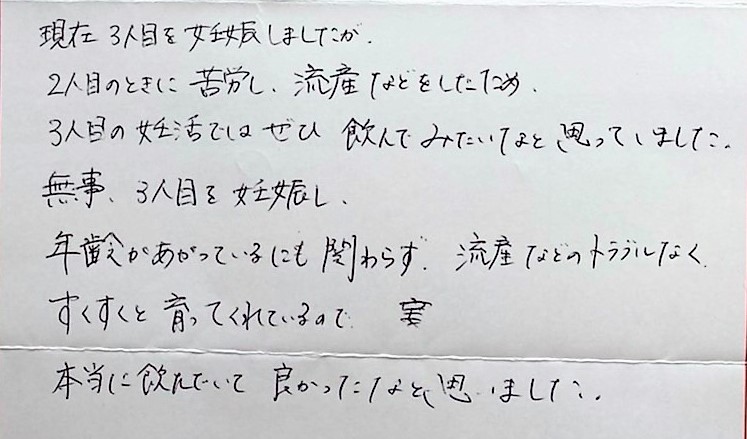 現在 3人目を妊娠しましたが、
2人目のときに 苦労し、流産などをしたため、
3人目の妊活では ぜひ 飲んで みたいなと 思っていました。
無事、3人目を 妊娠し、
年齢があがっているにも 関わらず、流産などのトラブルなく、
すくすくと 育ってくれているので、
本当に飲んでいて 良かったなと、思いました。